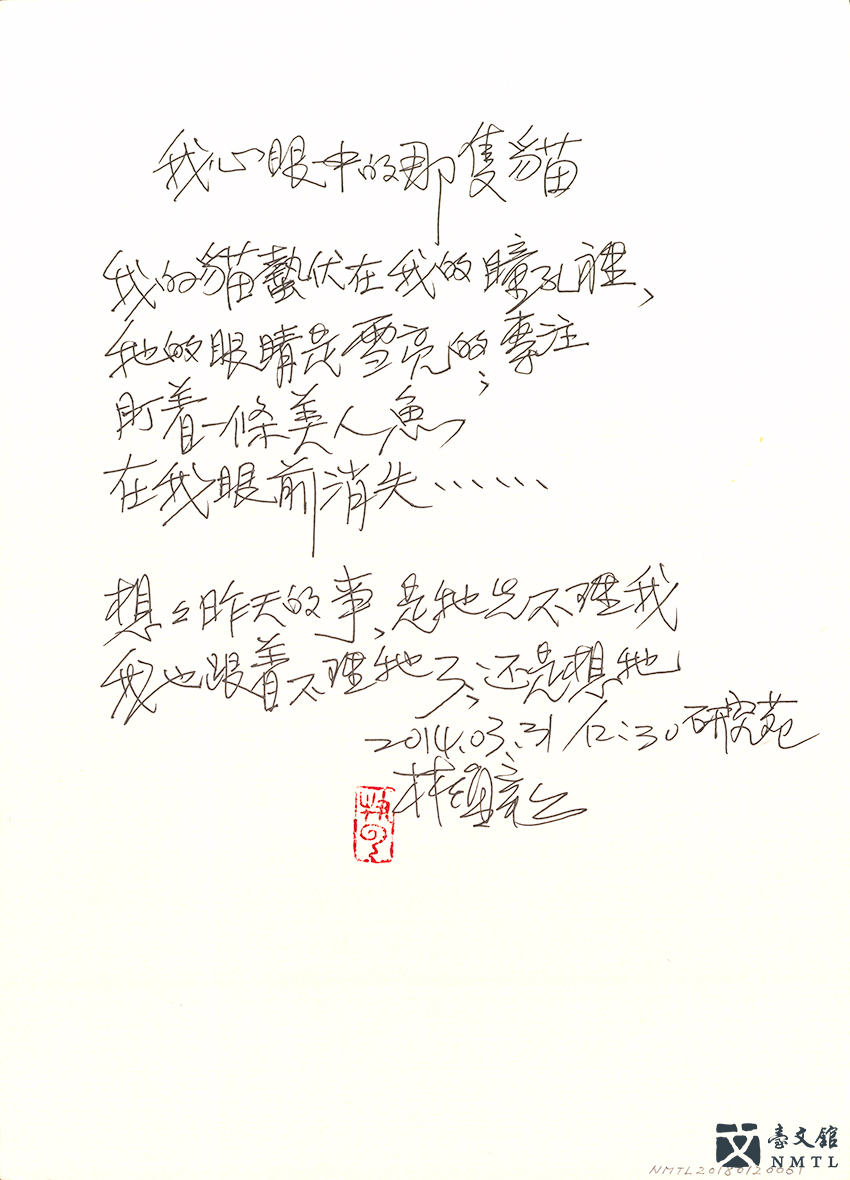 我心眼中的那隻貓
我的貓蟄伏在我的瞳孔裡、
牠的眼睛是雪亮的；專注
盯着一條美人魚，
在我眼前消失……
想想昨天的事、是牠先不理我
我也跟着不理牠了；还是想牠
2014.03.31 12:30 研究苑
林煥彰
臺文館
NMTL
NMTL20180120061